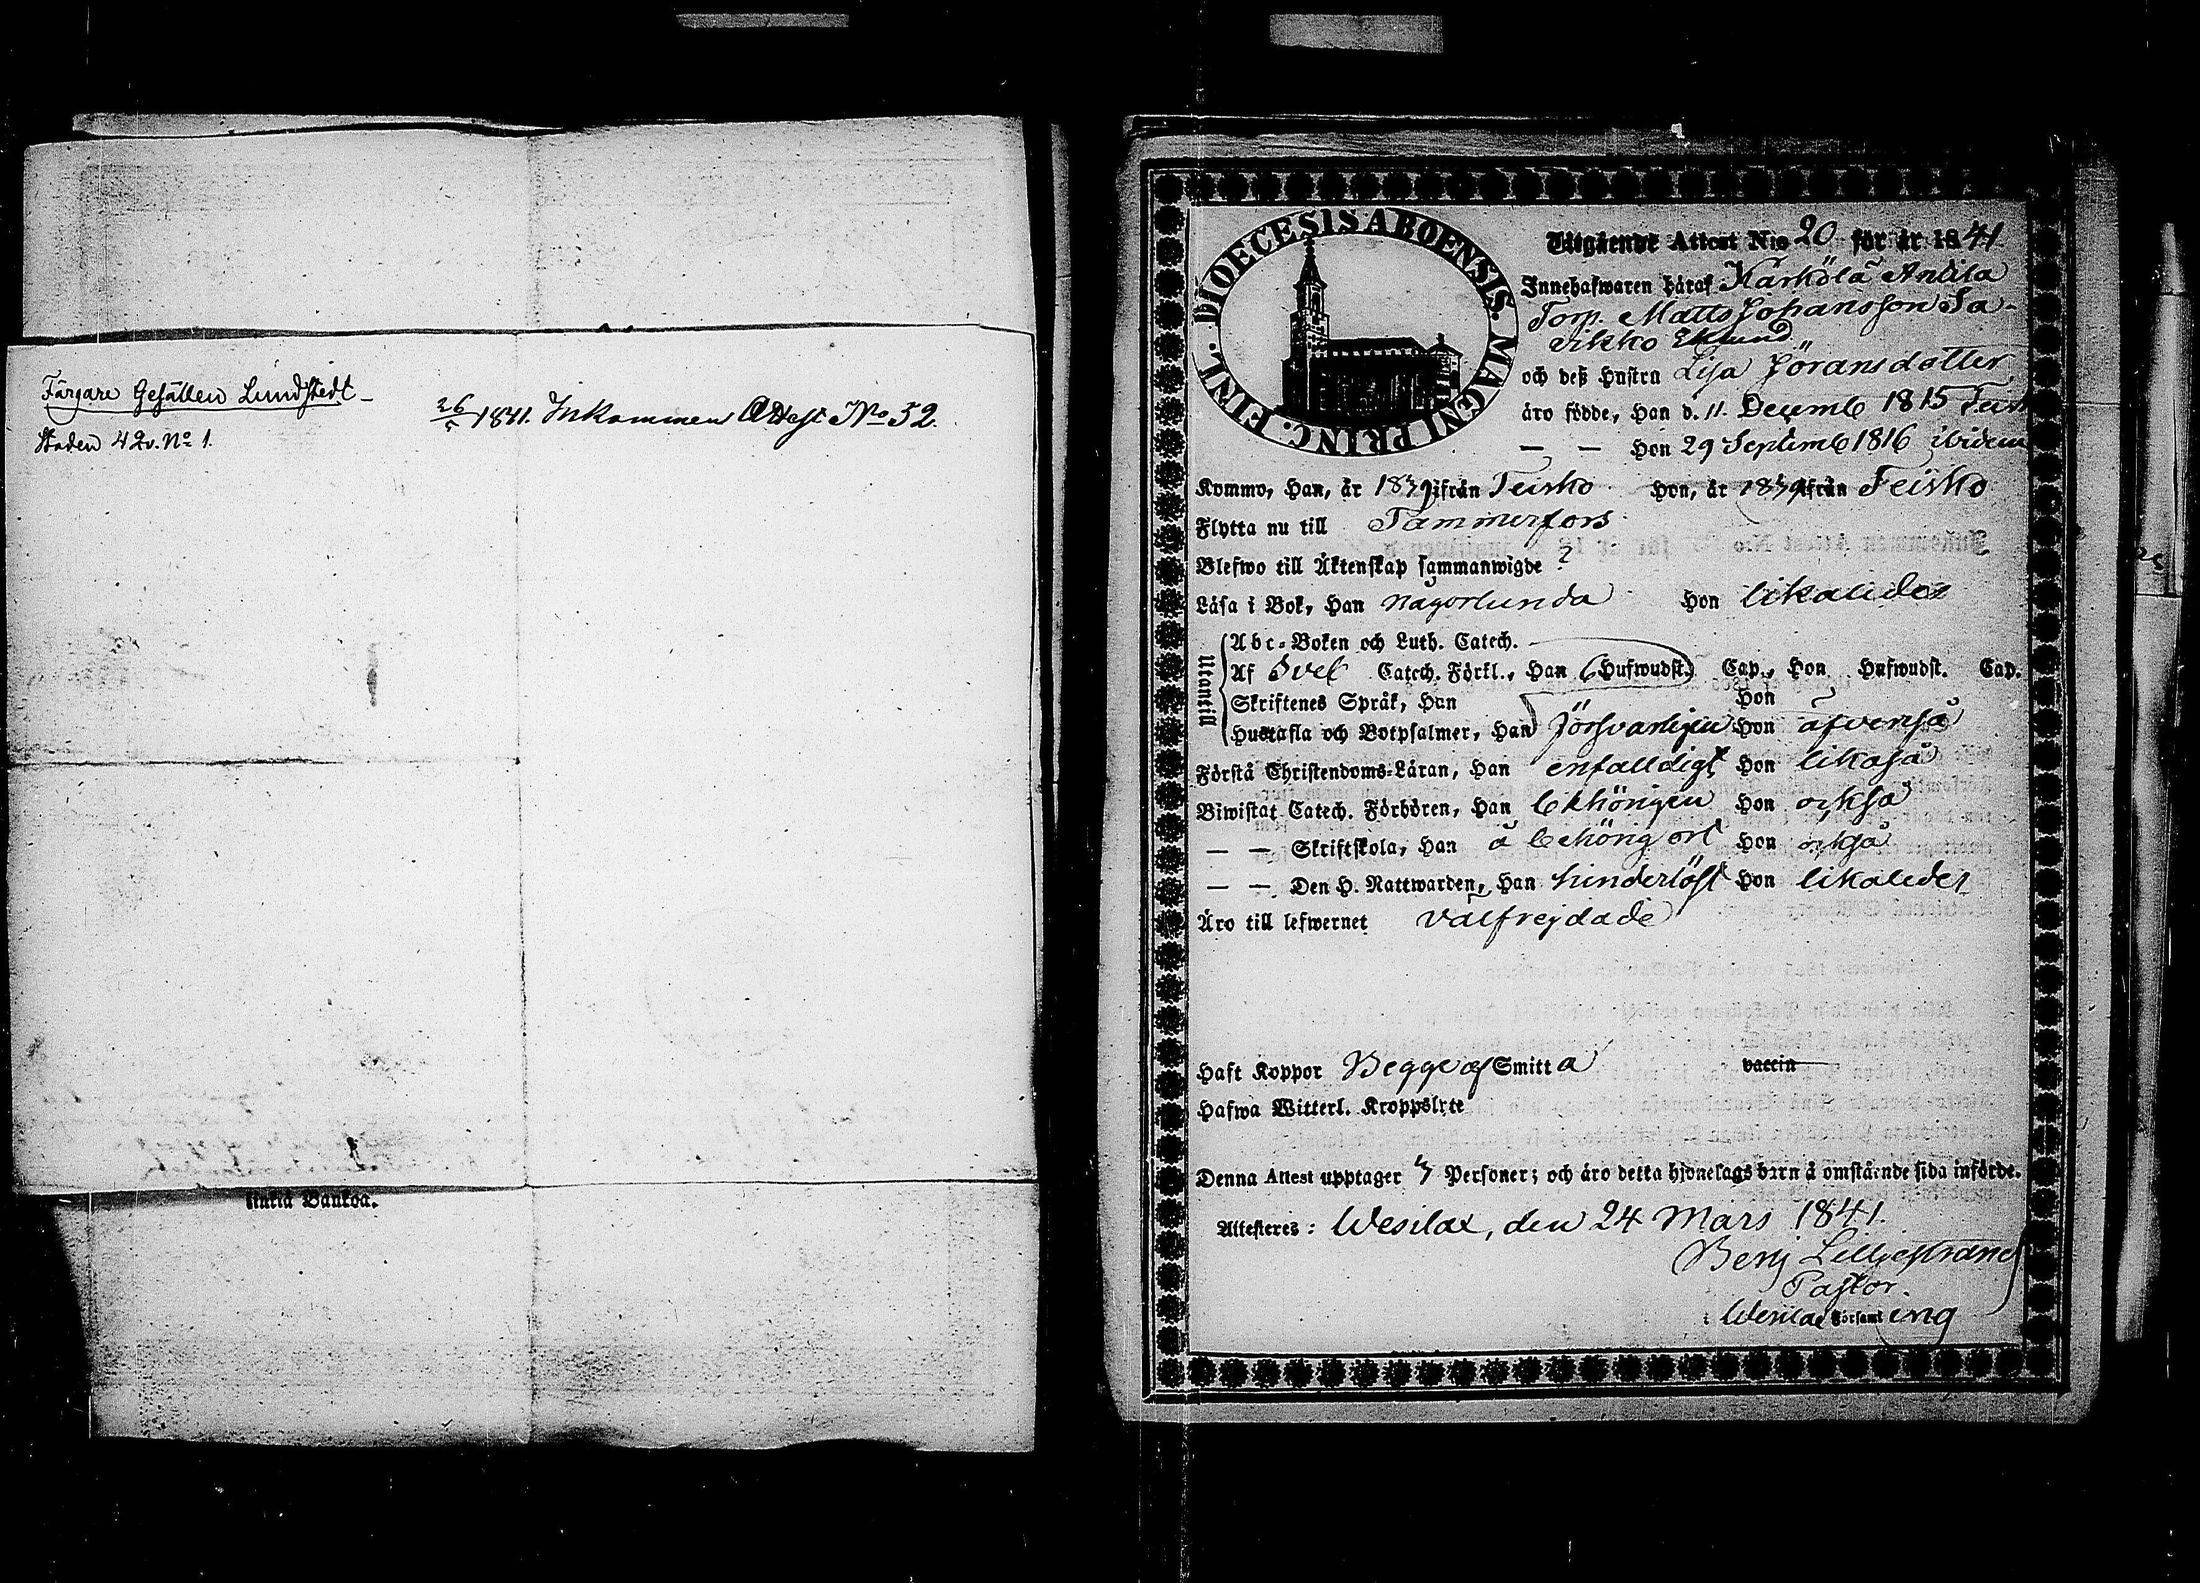 Färgare Gesällen Lundstedt
Staden 42 v. No 1.
26/5 1841. Inkommen Attest No 52.
Bankoa.
DIOECESIS ABOENSIS. MAGNI PRINC. FINL.
Utgående Attest N:o 20 för år 1841
Innehafwaren häraf Kärkölä Anttila
Torp. Matts Johansson Sa-
vikko Eklund
och deß Hustru Lisa Jöransdotter
äro födde, Han d. 11 Decemb 1815 Teisk
— — Hon 29 Septemb 1816 ibidem
Kommo, Han, år 1839 ifrån Teisko Hon, år 1839 ifrån Teisko
Flytta nu till Tammerfors
Blefwo till Äktenskap sammanwigde ?
Läsa i Bok, Han någorlunda Hon likaledes
Utantill
Abc-Boken och Luth. Catech.
Af Svel Catech. Förkl., Han 6 Hufwudst. Cap., Hon Hufwudst. Cap.
Skriftenes Språk, Han Hon
Hustafla och Botpsalmer, Han försvarligen Hon äfvenså
Förstå Christendoms-Läran, Han enfalldigt Hon likaså
Biwistat Catech. Förhören, Han behörigen Hon också
— — Skriftskola, Han å behörig ort Hon också
— — Den H. Nattwarden, Han hinderlöst Hon likaledes
Äro till lefwernet välfrejdade
Haft Koppor Begge af Smitta vaccin
Hafwa Witterl. Kroppslyte
Denna Attest upptager 3 Personer; och äro detta hjonelags barn å omstående sida införde.
Attesteres: Wesilax, den 24 Mars 1841.
Benj Lilljestrand
Pastor.
i Wesilax Församling